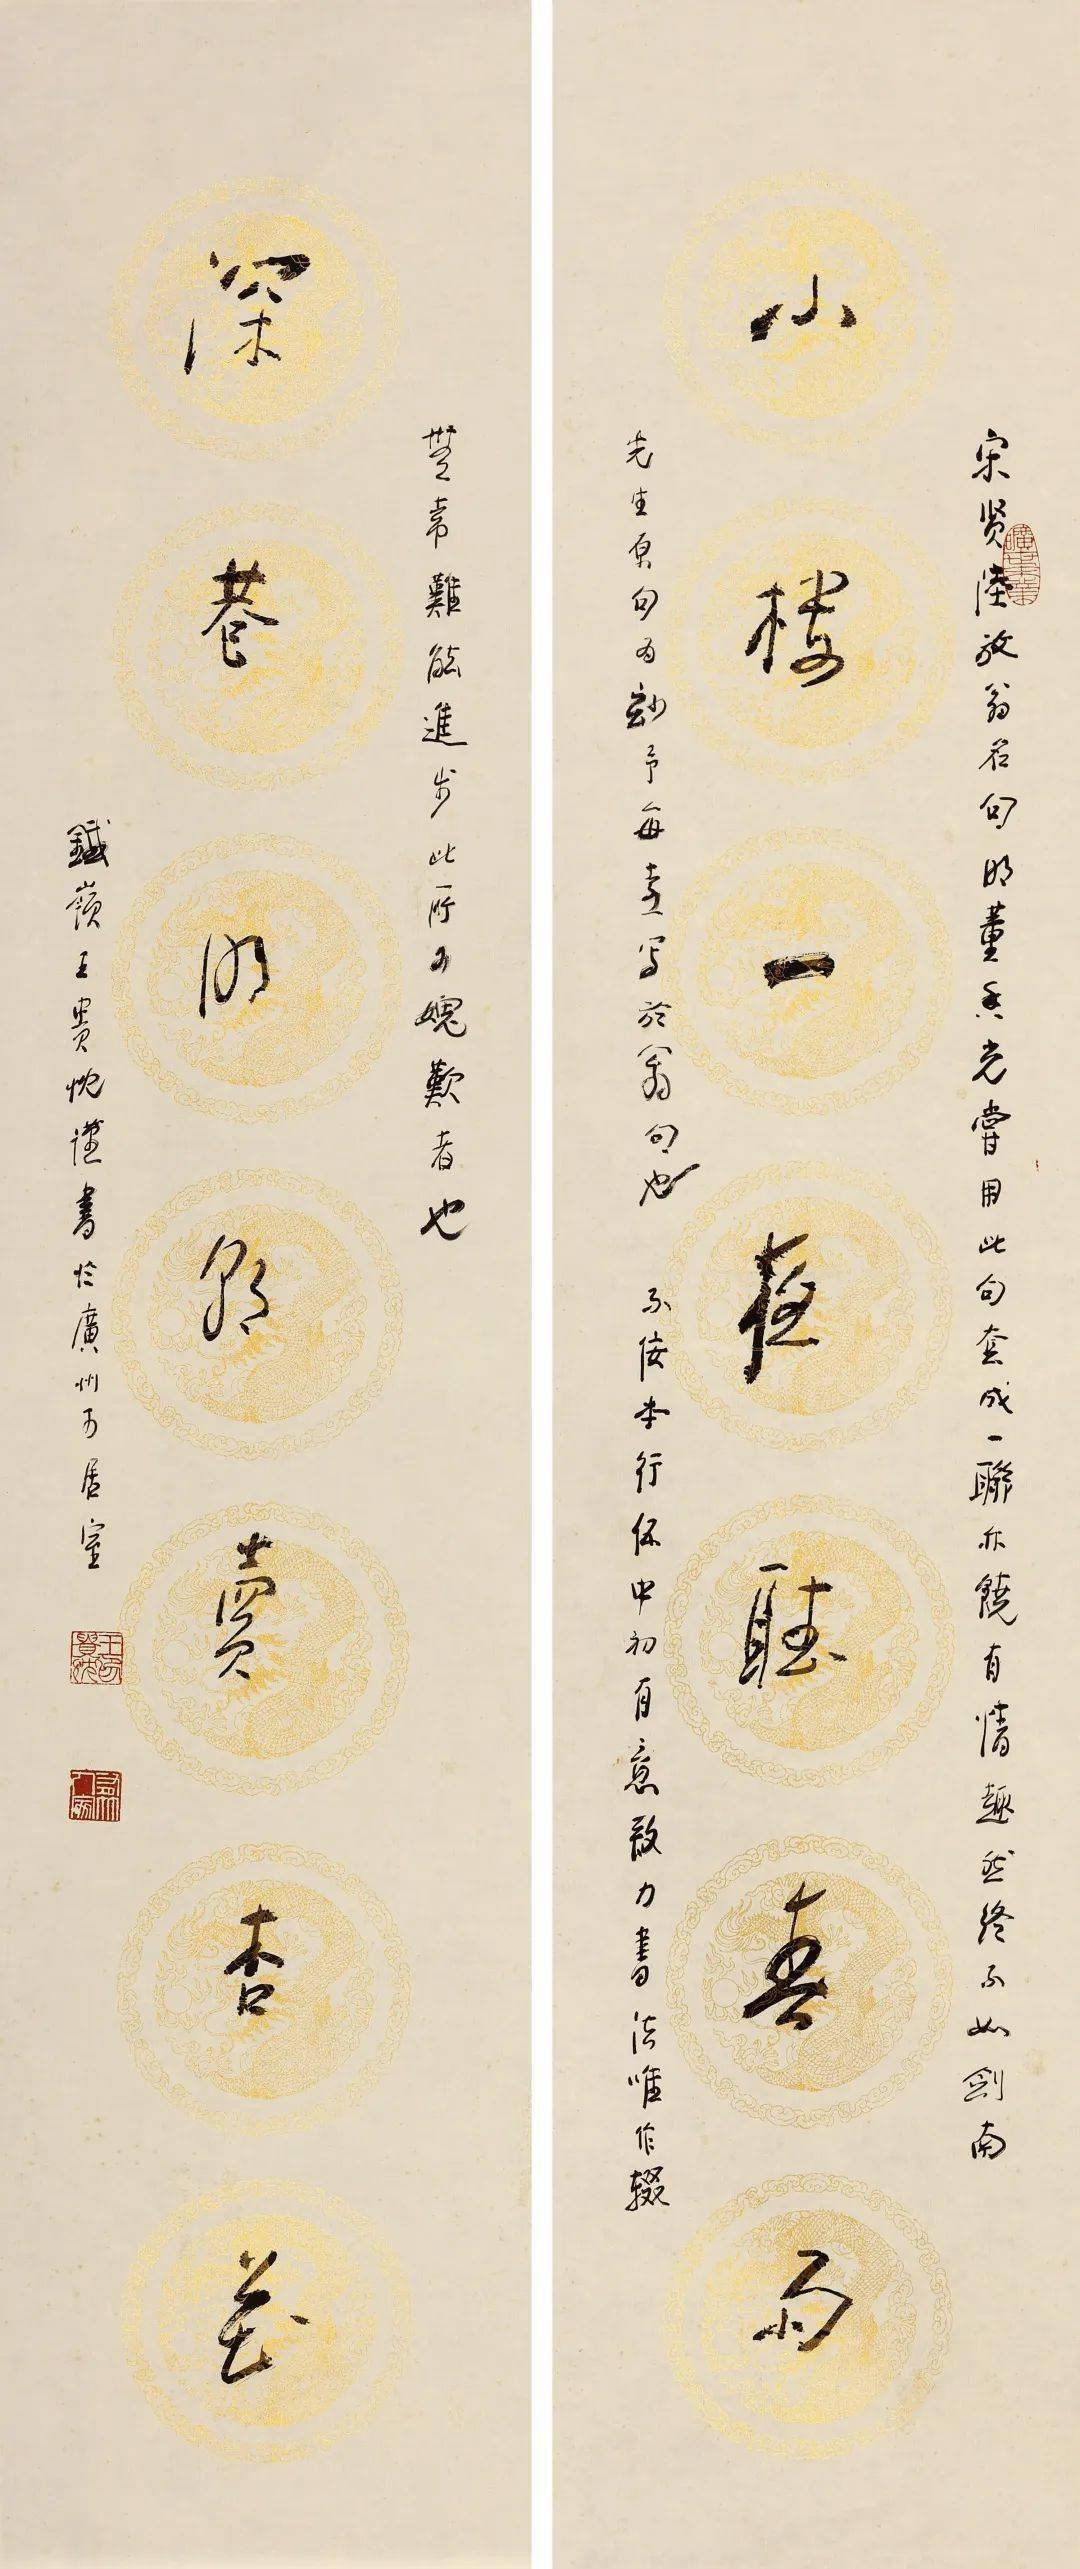 宋贤陸放翁名句明董香光嘗用此句套成一聯亦饒有情趣然終不如劍南
小樓一夜聽春雨
先生原句为妙予每喜写於翁句也 不佞本行伍中初有意致力書法唯作輟
無常難能進步此所为愧歎者也
深巷明朝賣杏花
鐵嶺王貴忱謹書於廣州可居室